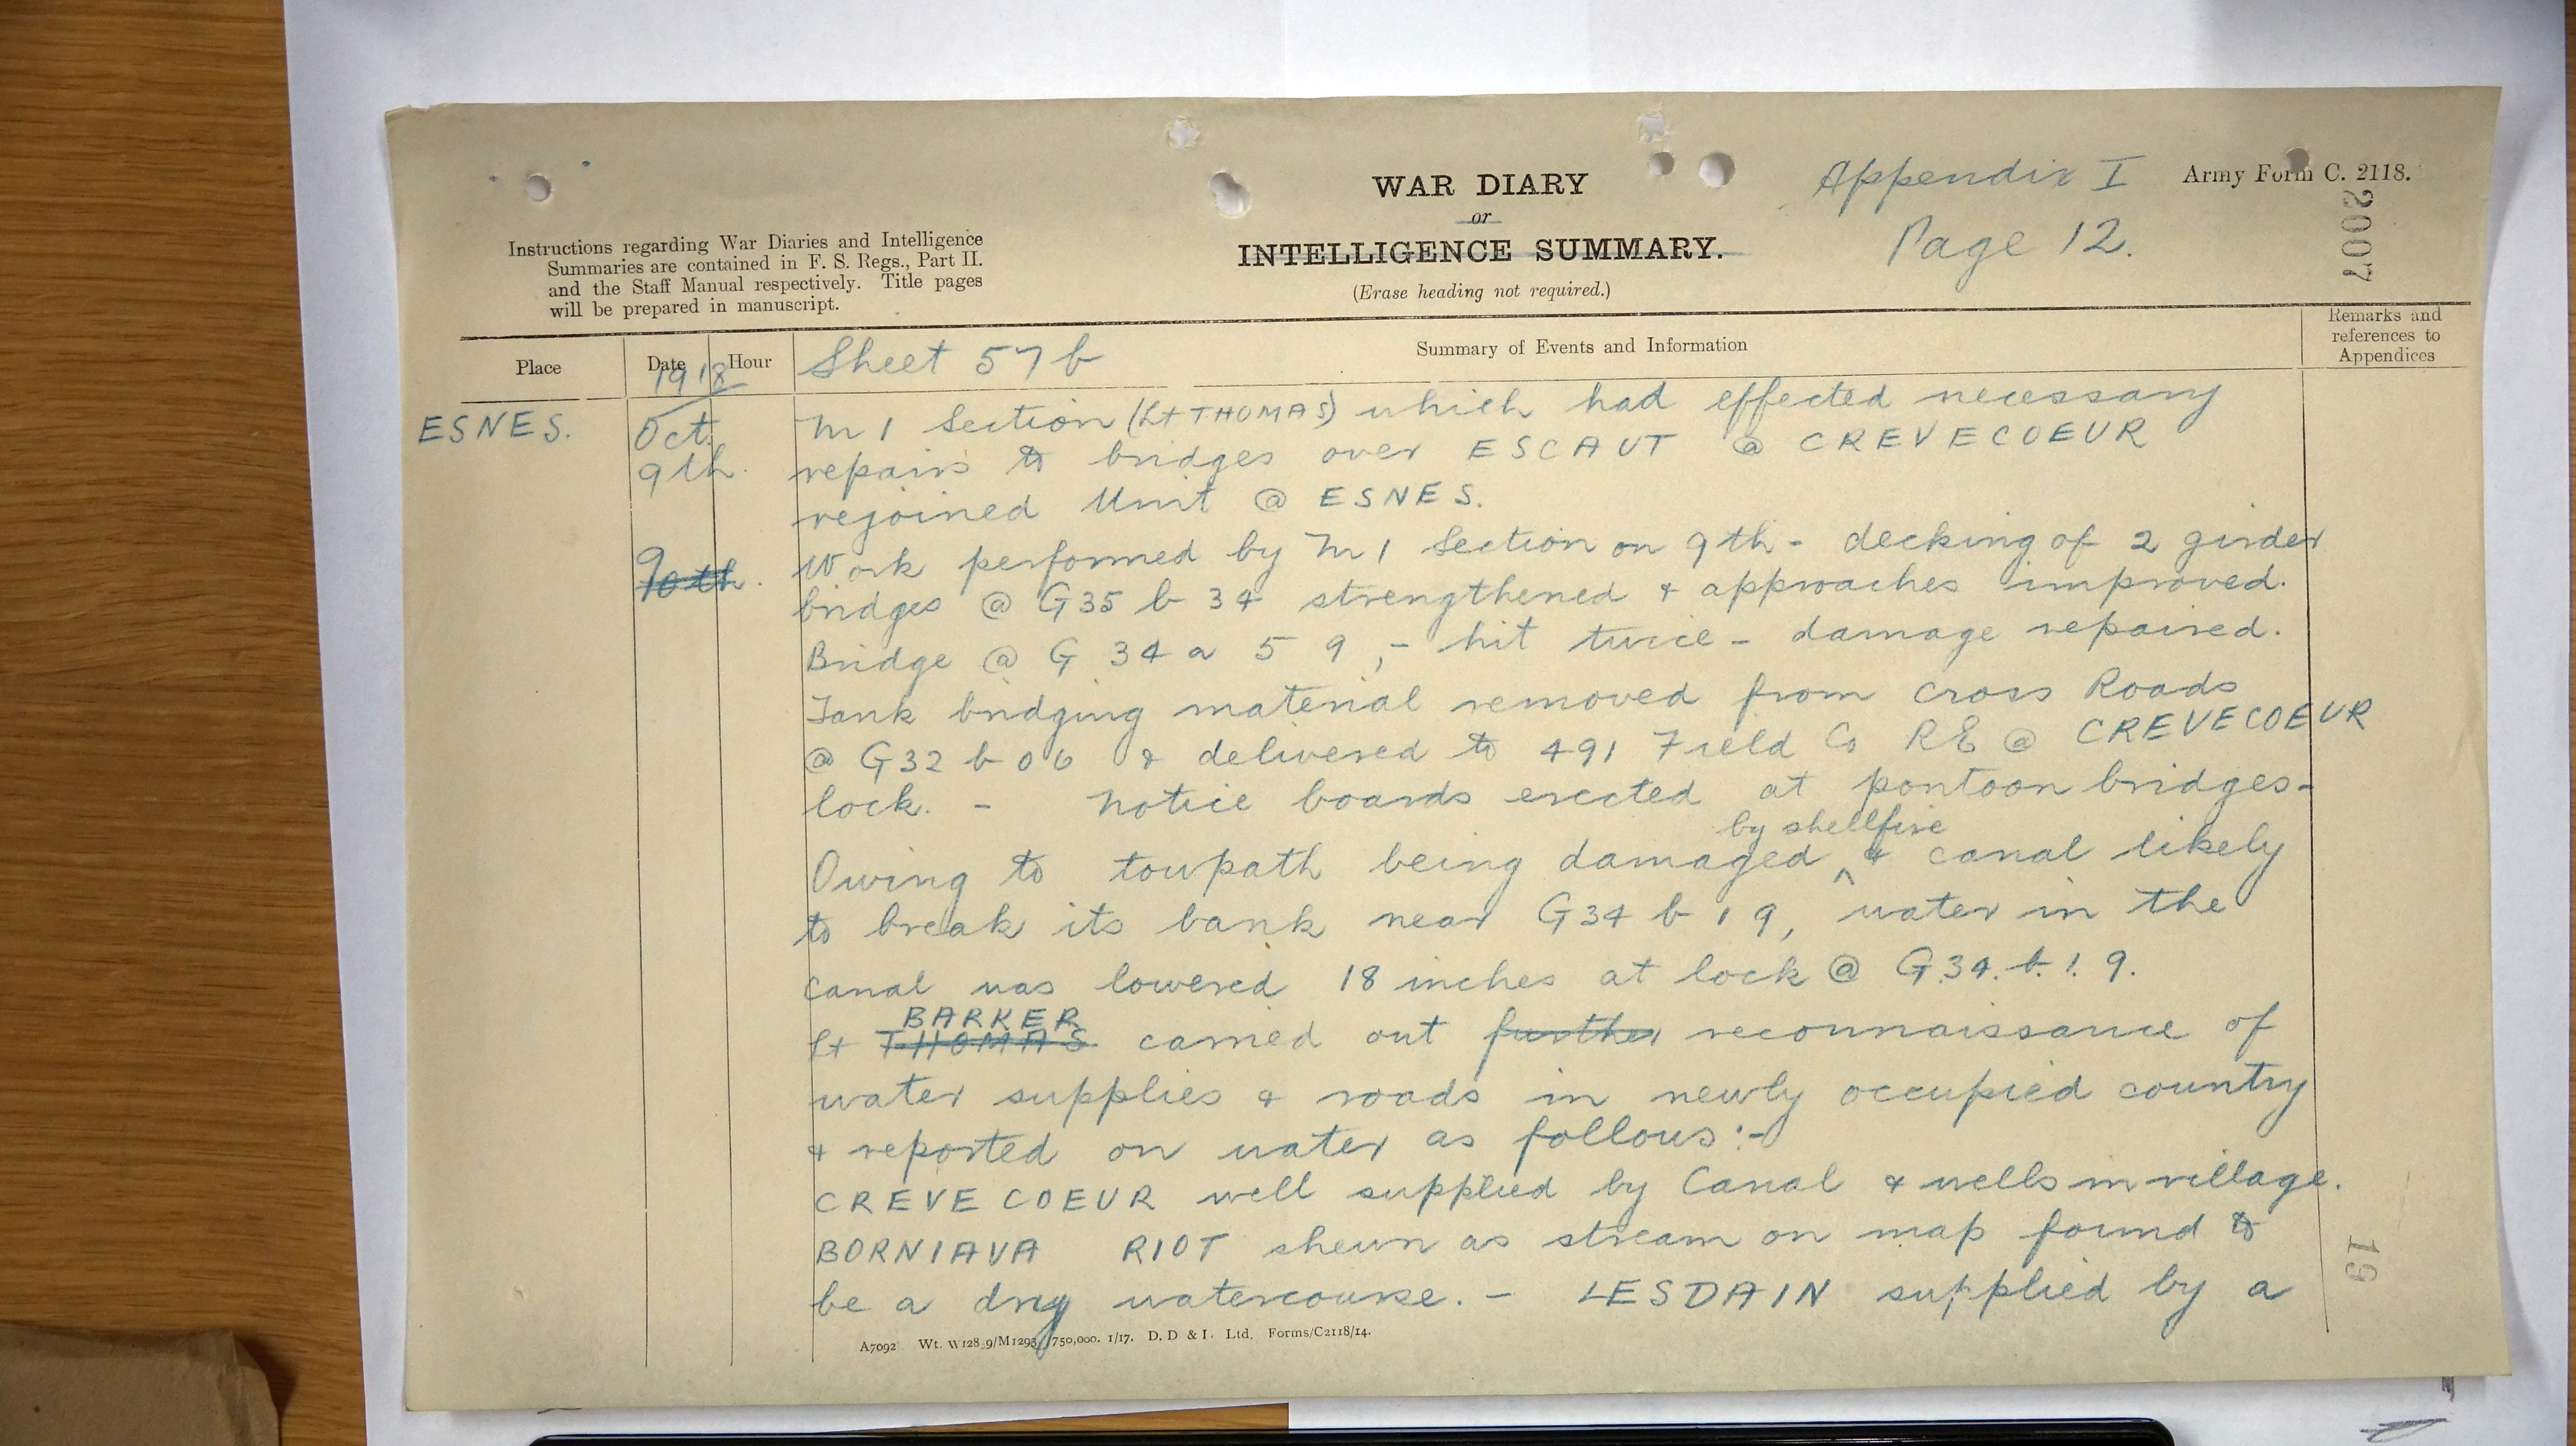 WAR DIARY
or
INTELLIGENCE SUMMARY.
(Erase heading not required.)
Appendix I
Page 12.
Army Form C. 2118.
2007
Instructions regarding War Diaries and Intelligence
Summaries are contained in F. S. Regs., Part II.
and the Staff Manual respectively. Title pages
will be prepared in manuscript.
Place
Date
Hour
1918
Sheet 57 b
Summary of Events and Information
Remarks and
references to
Appendices
ESNES.
Oct.
9th.
9
10th.
1 Section (Lt THOMAS) which had effected necessary
repairs to bridges over ESCAUT @ CREVECOEUR
rejoined Unit @ ESNES.
Work performed by 1 Section on 9th - decking of 2 girder
bridges @ G35 b 34 strengthened & approaches improved.
Bridge @ G 34 a 5 9, - hit twice - damage repaired.
Tank bridging material removed from Cross Roads
@ G32 b 06 & delivered to 491 Field Co RE @ CREVECOEUR
lock. - Notice boards erected at pontoon bridges-
by shellfire
Owing to towpath being damaged ^ & canal likely
to break its bank near G34 b 1 9, water in the
canal was lowered 18 inches at lock @ G.34.b.1.9.
BARKER
Lt THOMAS carried out further reconnaissance of
water supplies & roads in newly occupied country
& reported on water as follows:-
CREVE COEUR well supplied by Canal & wells in village.
BORNIAVA RIOT shewn as stream on map found to
be a dry watercourse. - LESDAIN supplied by a
19
A7092 Wt. W128.9/M1293 750,000. 1/17. D. D & L. Ltd. Forms/C2118/14.